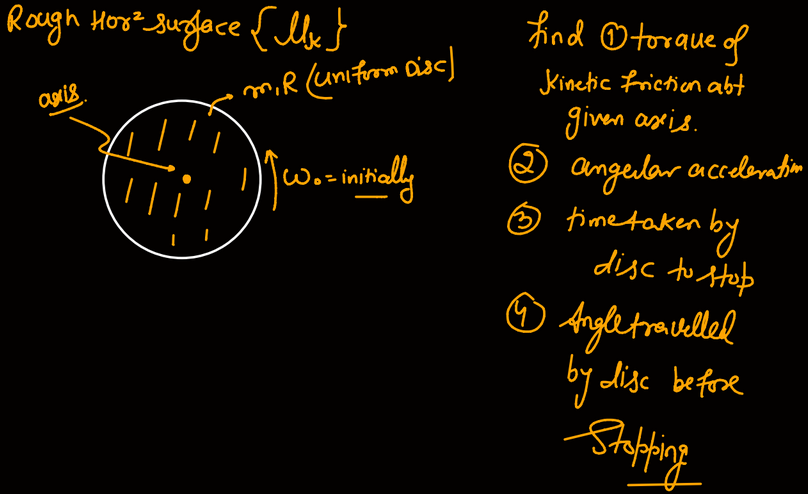 Rough Horz surface {μk}
axis.
m, R (Uniform Disc)
ω₀ = initially
find ① torque of
kinetic friction abt
given axis.
② angular acceleration
③ time taken by
disc to stop
④ Angle travelled
by disc before
Stopping